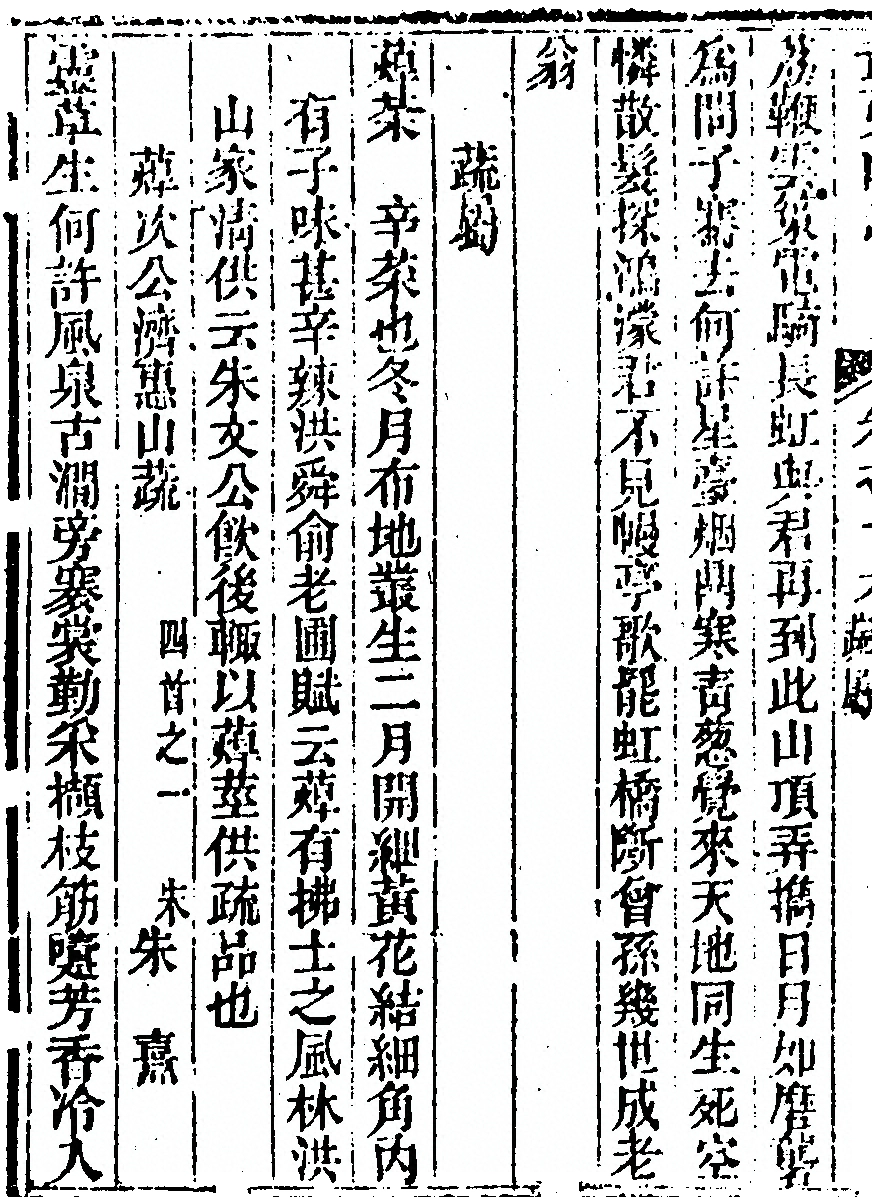 鞭雲策電騎長虹與君再到此山頂弄擕日月如磨
為問子騫去何許星臺烟雨寒青葱覺來天地同生死空
憐散髮探鴻濛君不見幔亭歌罷虹橋斷曾孫幾世成老
翁
蔬屬
蔊菜　辛菜也冬月布地叢生二月開細黃花結細角內
有子味甚辛辣洪舜俞老圃賦云蔊有拂士之風林洪
山家清供云朱文公飲後輒以蔊莖供蔬品也
蔊次公濟惠山蔬　四首之一　宋朱　熹
靈草生何許風泉古澗旁褰裳勤采擷枝筯嚏芳香冷入